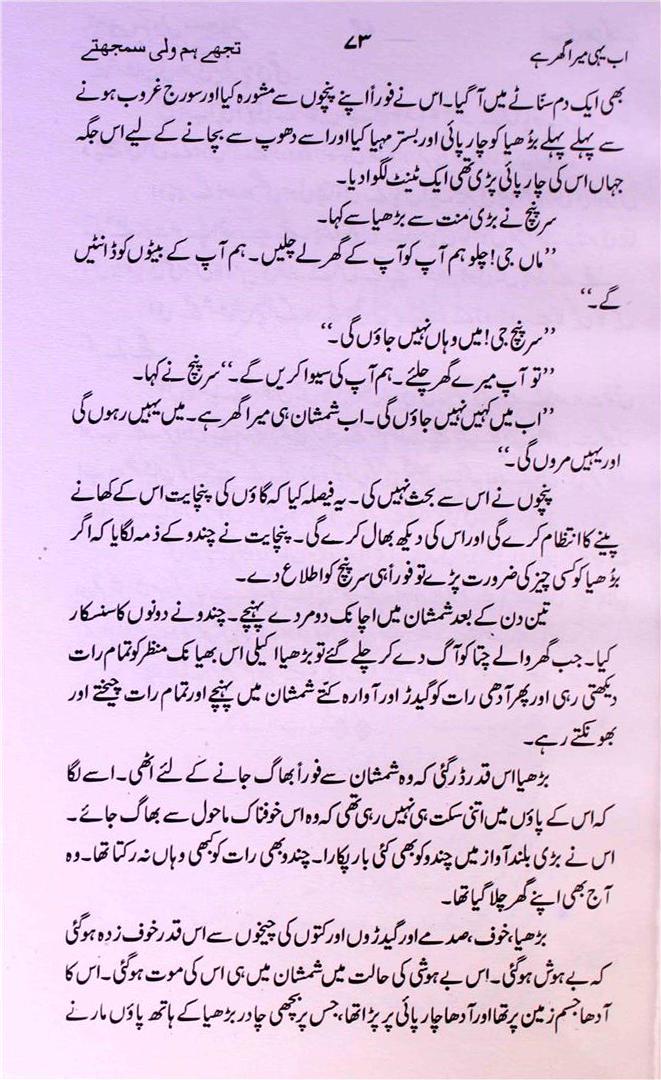 اب یہی میرا گھر ہے ۷۳ تجھے ہم ولی سمجھتے
بھی ایک دم سنّاٹے میں آگیا۔ اس نے فوراً اپنے پنچوں سے مشورہ کیا اور سورج غروب ہونے
سے پہلے پہلے بڑھیا کو چارپائی اور بستر مہیا کیا اور اسے دھوپ سے بچانے کے لیے اس جگہ
جہاں اس کی چارپائی پڑی تھی ایک ٹینٹ لگوا دیا۔
سرپنچ نے بڑی منت سے بڑھیا سے کہا۔
’’ماں جی! چلو ہم آپ کو آپ کے گھر لے چلیں۔ ہم آپ کے بیٹوں کو ڈانٹیں
گے۔‘‘
’’سرپنچ جی! میں وہاں نہیں جاؤں گی۔‘‘
’’تو آپ میرے گھر چلئے۔ ہم آپ کی سیوا کریں گے۔‘‘ سرپنچ نے کہا۔
’’اب میں کہیں نہیں جاؤں گی۔ اب شمشان ہی میرا گھر ہے۔ میں یہیں رہوں گی
اور یہیں مروں گی۔‘‘
پنچوں نے اس سے بحث نہیں کی۔ یہ فیصلہ کیا کہ گاؤں کی پنچایت اس کے کھانے
پینے کا انتظام کرے گی اور اس کی دیکھ بھال کرے گی۔ پنچایت نے چندو کے ذمہ لگایا کہ اگر
بڑھیا کو کسی چیز کی ضرورت پڑے تو فوراً ہی سرپنچ کو اطلاع دے۔
تین دن کے بعد شمشان میں اچانک دو مردے پہنچے۔ چندو نے دونوں کا سنسکار
کیا۔ جب گھر والے چتا کو آگ دے کر چلے گئے تو بڑھیا اکیلی اس بھیانک منظر کو تمام رات
دیکھتی رہی اور پھر آدھی رات کو گیدڑ اور آوارہ کتّے شمشان میں پہنچے اور تمام رات چیختے اور
بھونکتے رہے۔
بڑھیا اس قدر ڈر گئی کہ وہ شمشان سے فوراً بھاگ جانے کے لئے اٹھی۔ اسے لگا
کہ اس کے پاؤں میں اتنی سکت ہی نہیں رہی تھی کہ وہ اس خوفناک ماحول سے بھاگ جائے۔
اس نے بڑی بلند آواز میں چندو کو بھی کئی بار پکارا۔ چندو بھی رات کو کبھی وہاں نہ رکتا تھا۔ وہ
آج بھی اپنے گھر چلا گیا تھا۔
بڑھیا، خوف، صدمے اور گیدڑوں اور کتوں کی چیخوں سے اس قدر خوف زدہ ہوگئی
کہ بے ہوش ہوگئی۔ اِس بے ہوشی کی حالت میں شمشان میں ہی اس کی موت ہوگئی۔ اس کا
آدھا جسم زمین پر تھا اور آدھا چارپائی پر پڑا تھا، جس پر بچھی چادر بڑھیا کے ہاتھ پاؤں مارنے